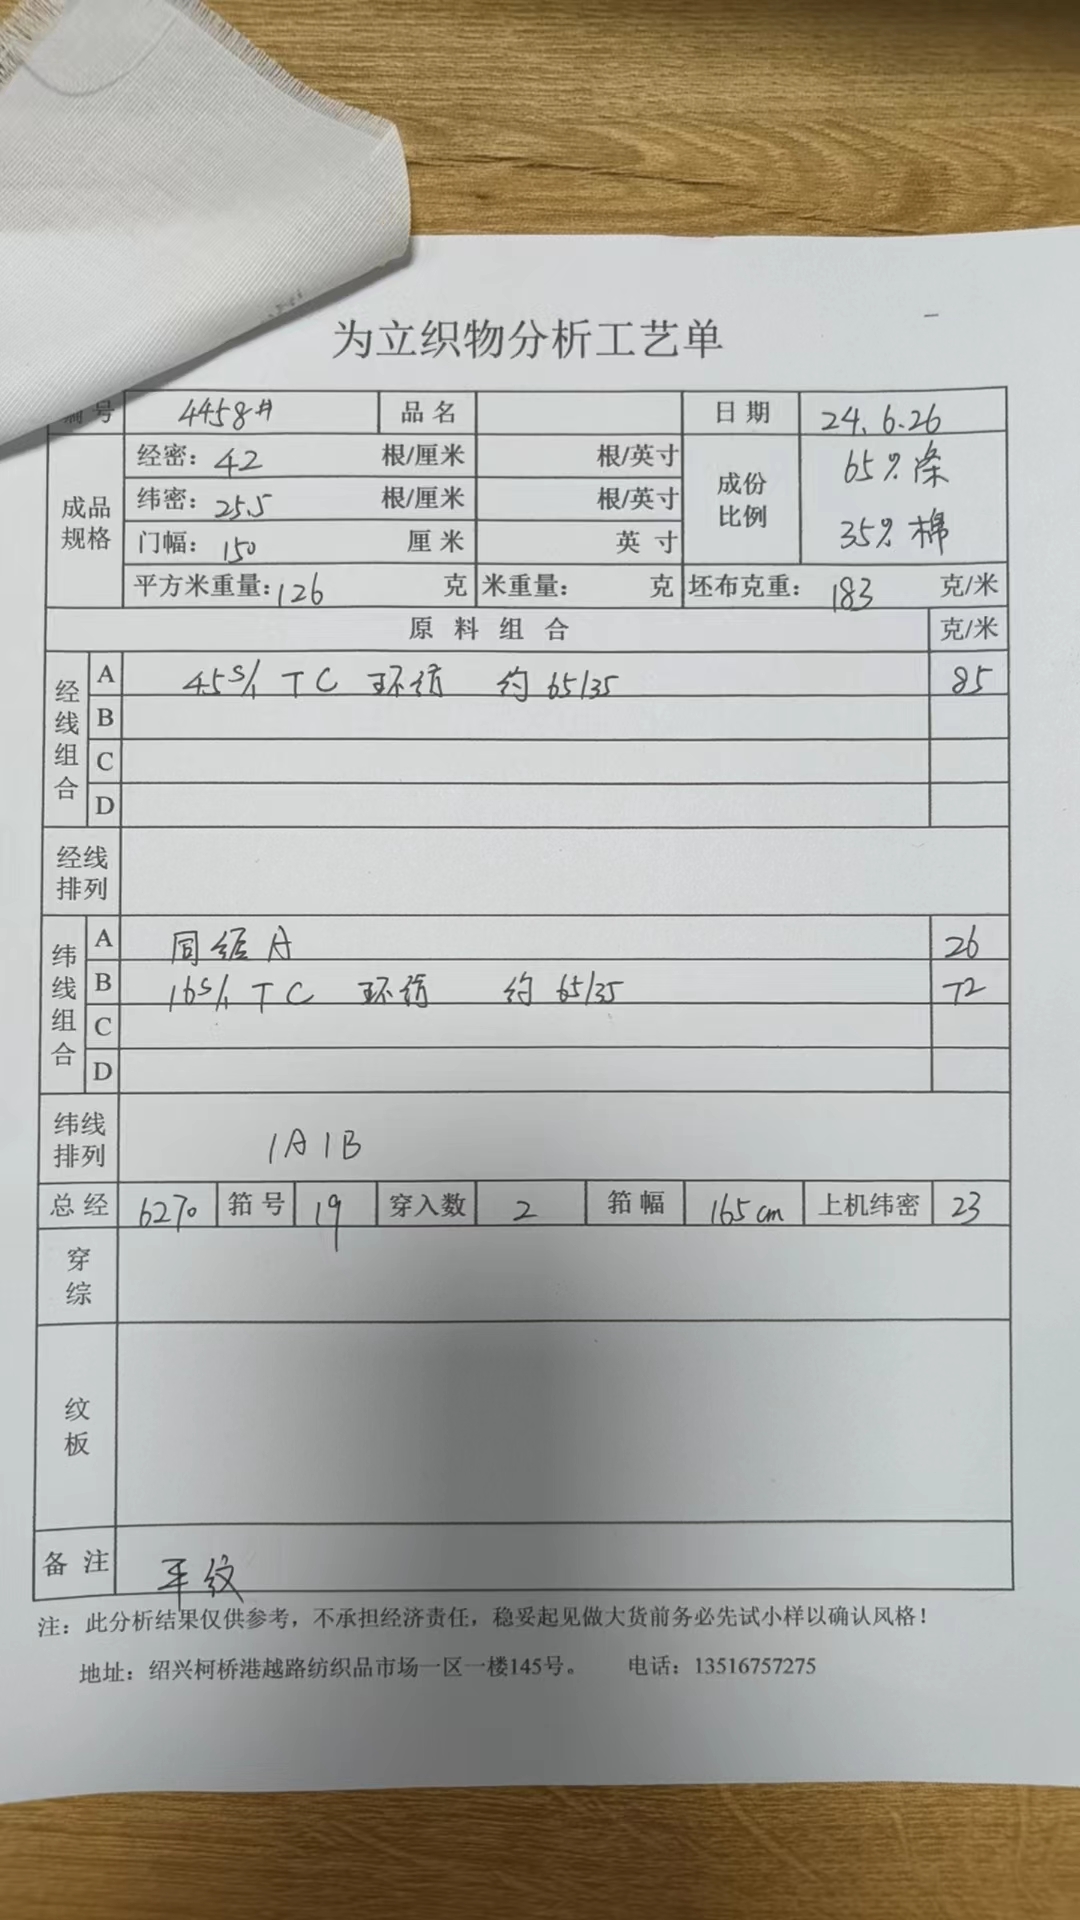 为立织物分析工艺单
编号 4458# 品名 日期 24.6.26
成品规格 经密：42 根/厘米 根/英寸 成份比例 65%涤
纬密：25.5 根/厘米 根/英寸 35%棉
门幅：150 厘米 英寸
平方米重量：126 克 米重量： 克 坯布克重： 183 克/米
原料组合 克/米
经线组合 A 45S/1 TC 环纺 约65/35 85
B
C
D
经线排列
纬线组合 A 同经A 26
B 16S/1 TC 环纺 约65/35 72
C
D
纬线排列 1A1B
总经 6270 筘号 19 穿入数 2 筘幅 165cm 上机纬密 23
穿综
纹板
备注 平纹
注：此分析结果仅供参考，不承担经济责任，稳妥起见做大货前务必先试小样以确认风格！
地址：绍兴柯桥港越路纺织品市场一区一楼145号。 电话：13516757275